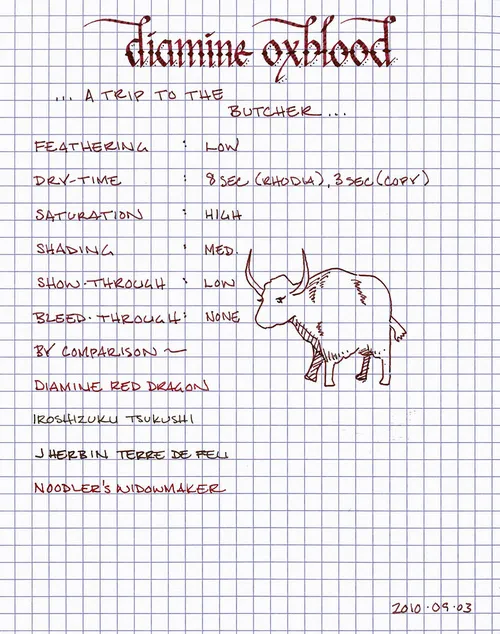 diamine oxblood
... A TRIP TO THE
BUTCHER ...
FEATHERING : LOW
DRY-TIME : 8 SEC (RHODIA), 3 SEC (COPY)
SATURATION : HIGH
SHADING : MED.
SHOW-THROUGH : LOW
BLEED-THROUGH : NONE
BY COMPARISON ~
DIAMINE RED DRAGON
IROSHIZUKU TSUKUSHI
J HERBIN TERRE DE FEU
NOODLER'S WIDOWMAKER
2010·09·03